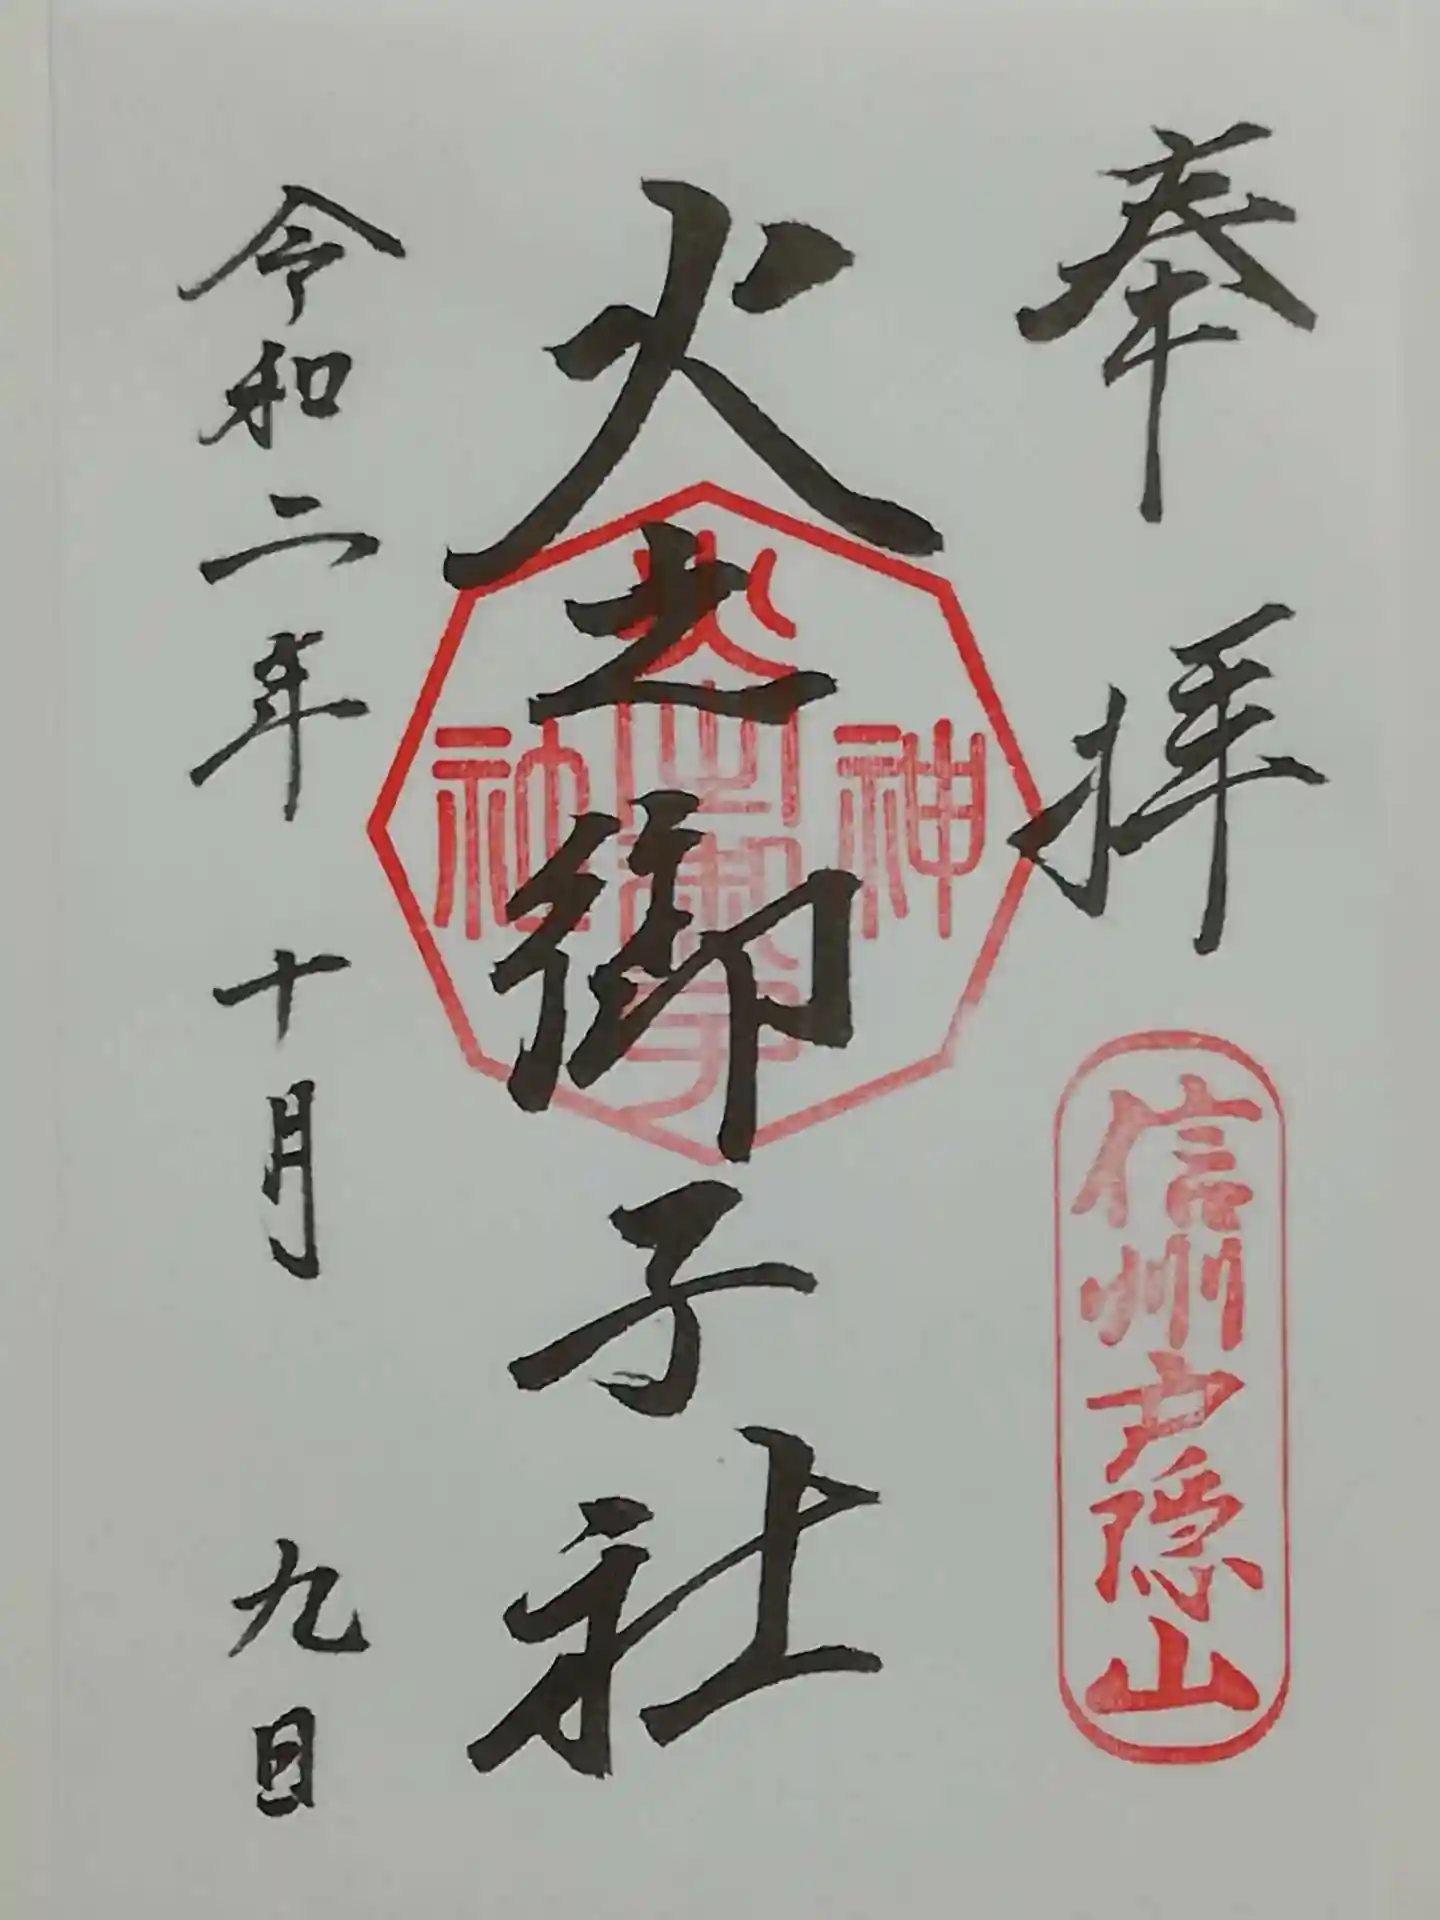 奉拝
信州戸隠山
火之御子社
神
火之御子
社
令和二年十月九日